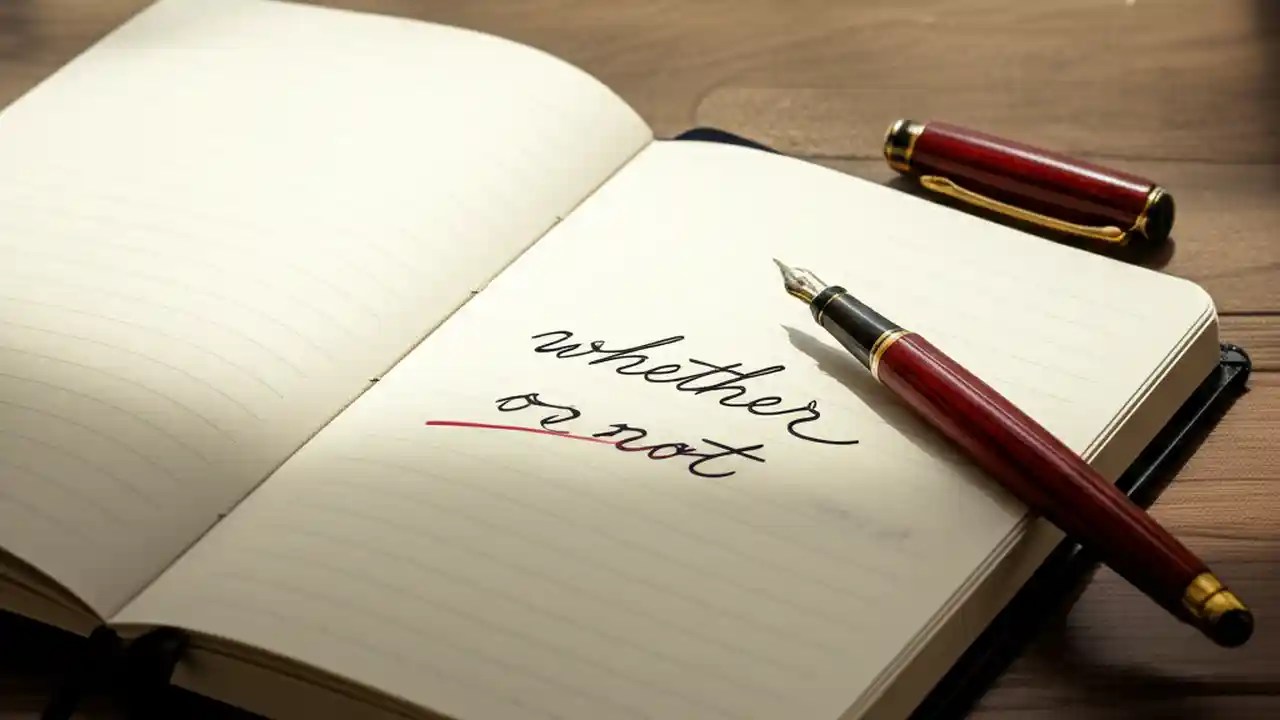 whether
or not